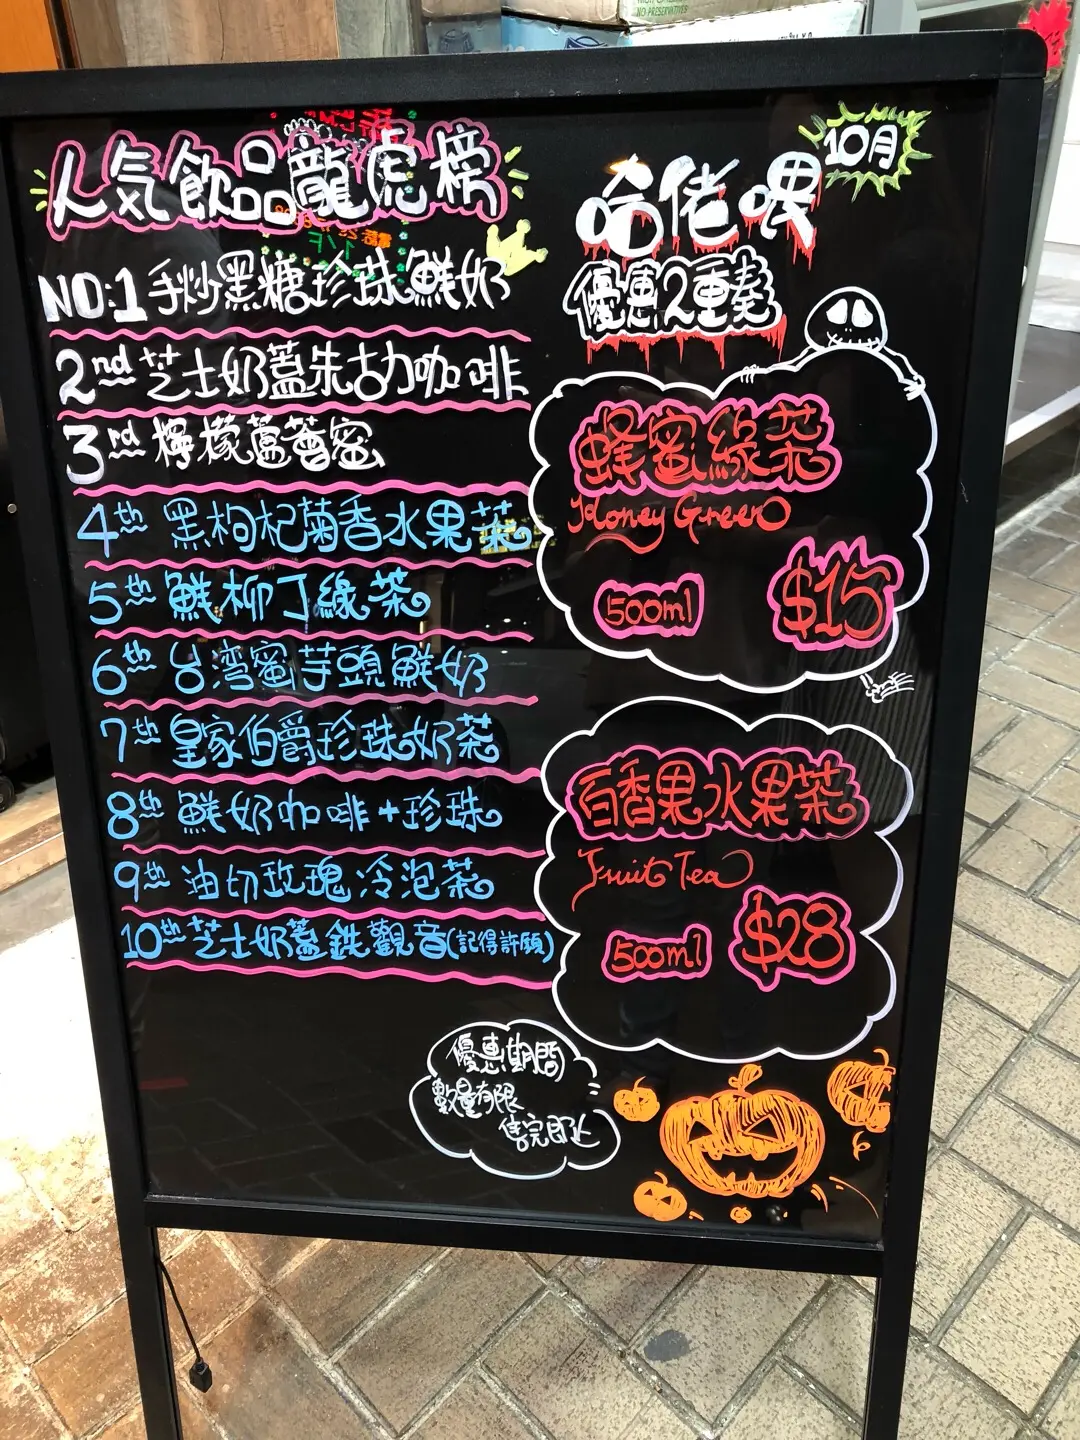 人気飲品龍虎榜
NO:1 手炒黑糖珍珠鮮奶
2nd 芝士奶蓋朱古力咖啡
3rd 檸檬蘆薈蜜
4th 黑枸杞菊香水果茶
5th 鮮柳丁綠茶
6th 台湾蜜芋頭鮮奶
7th 皇家伯爵珍珠奶茶
8th 鮮奶咖啡+珍珠
9th 油切玫瑰冷泡茶
10th 芝士奶蓋鉄觀音(記得許願)
10月
哈佬喂
優惠2重奏
蜂蜜綠茶
Honey Green
500ml
$15
百香果水果茶
Fruit Tea
500ml
$28
優惠期間
數量有限
售完即止
NO PRESERVATIVES